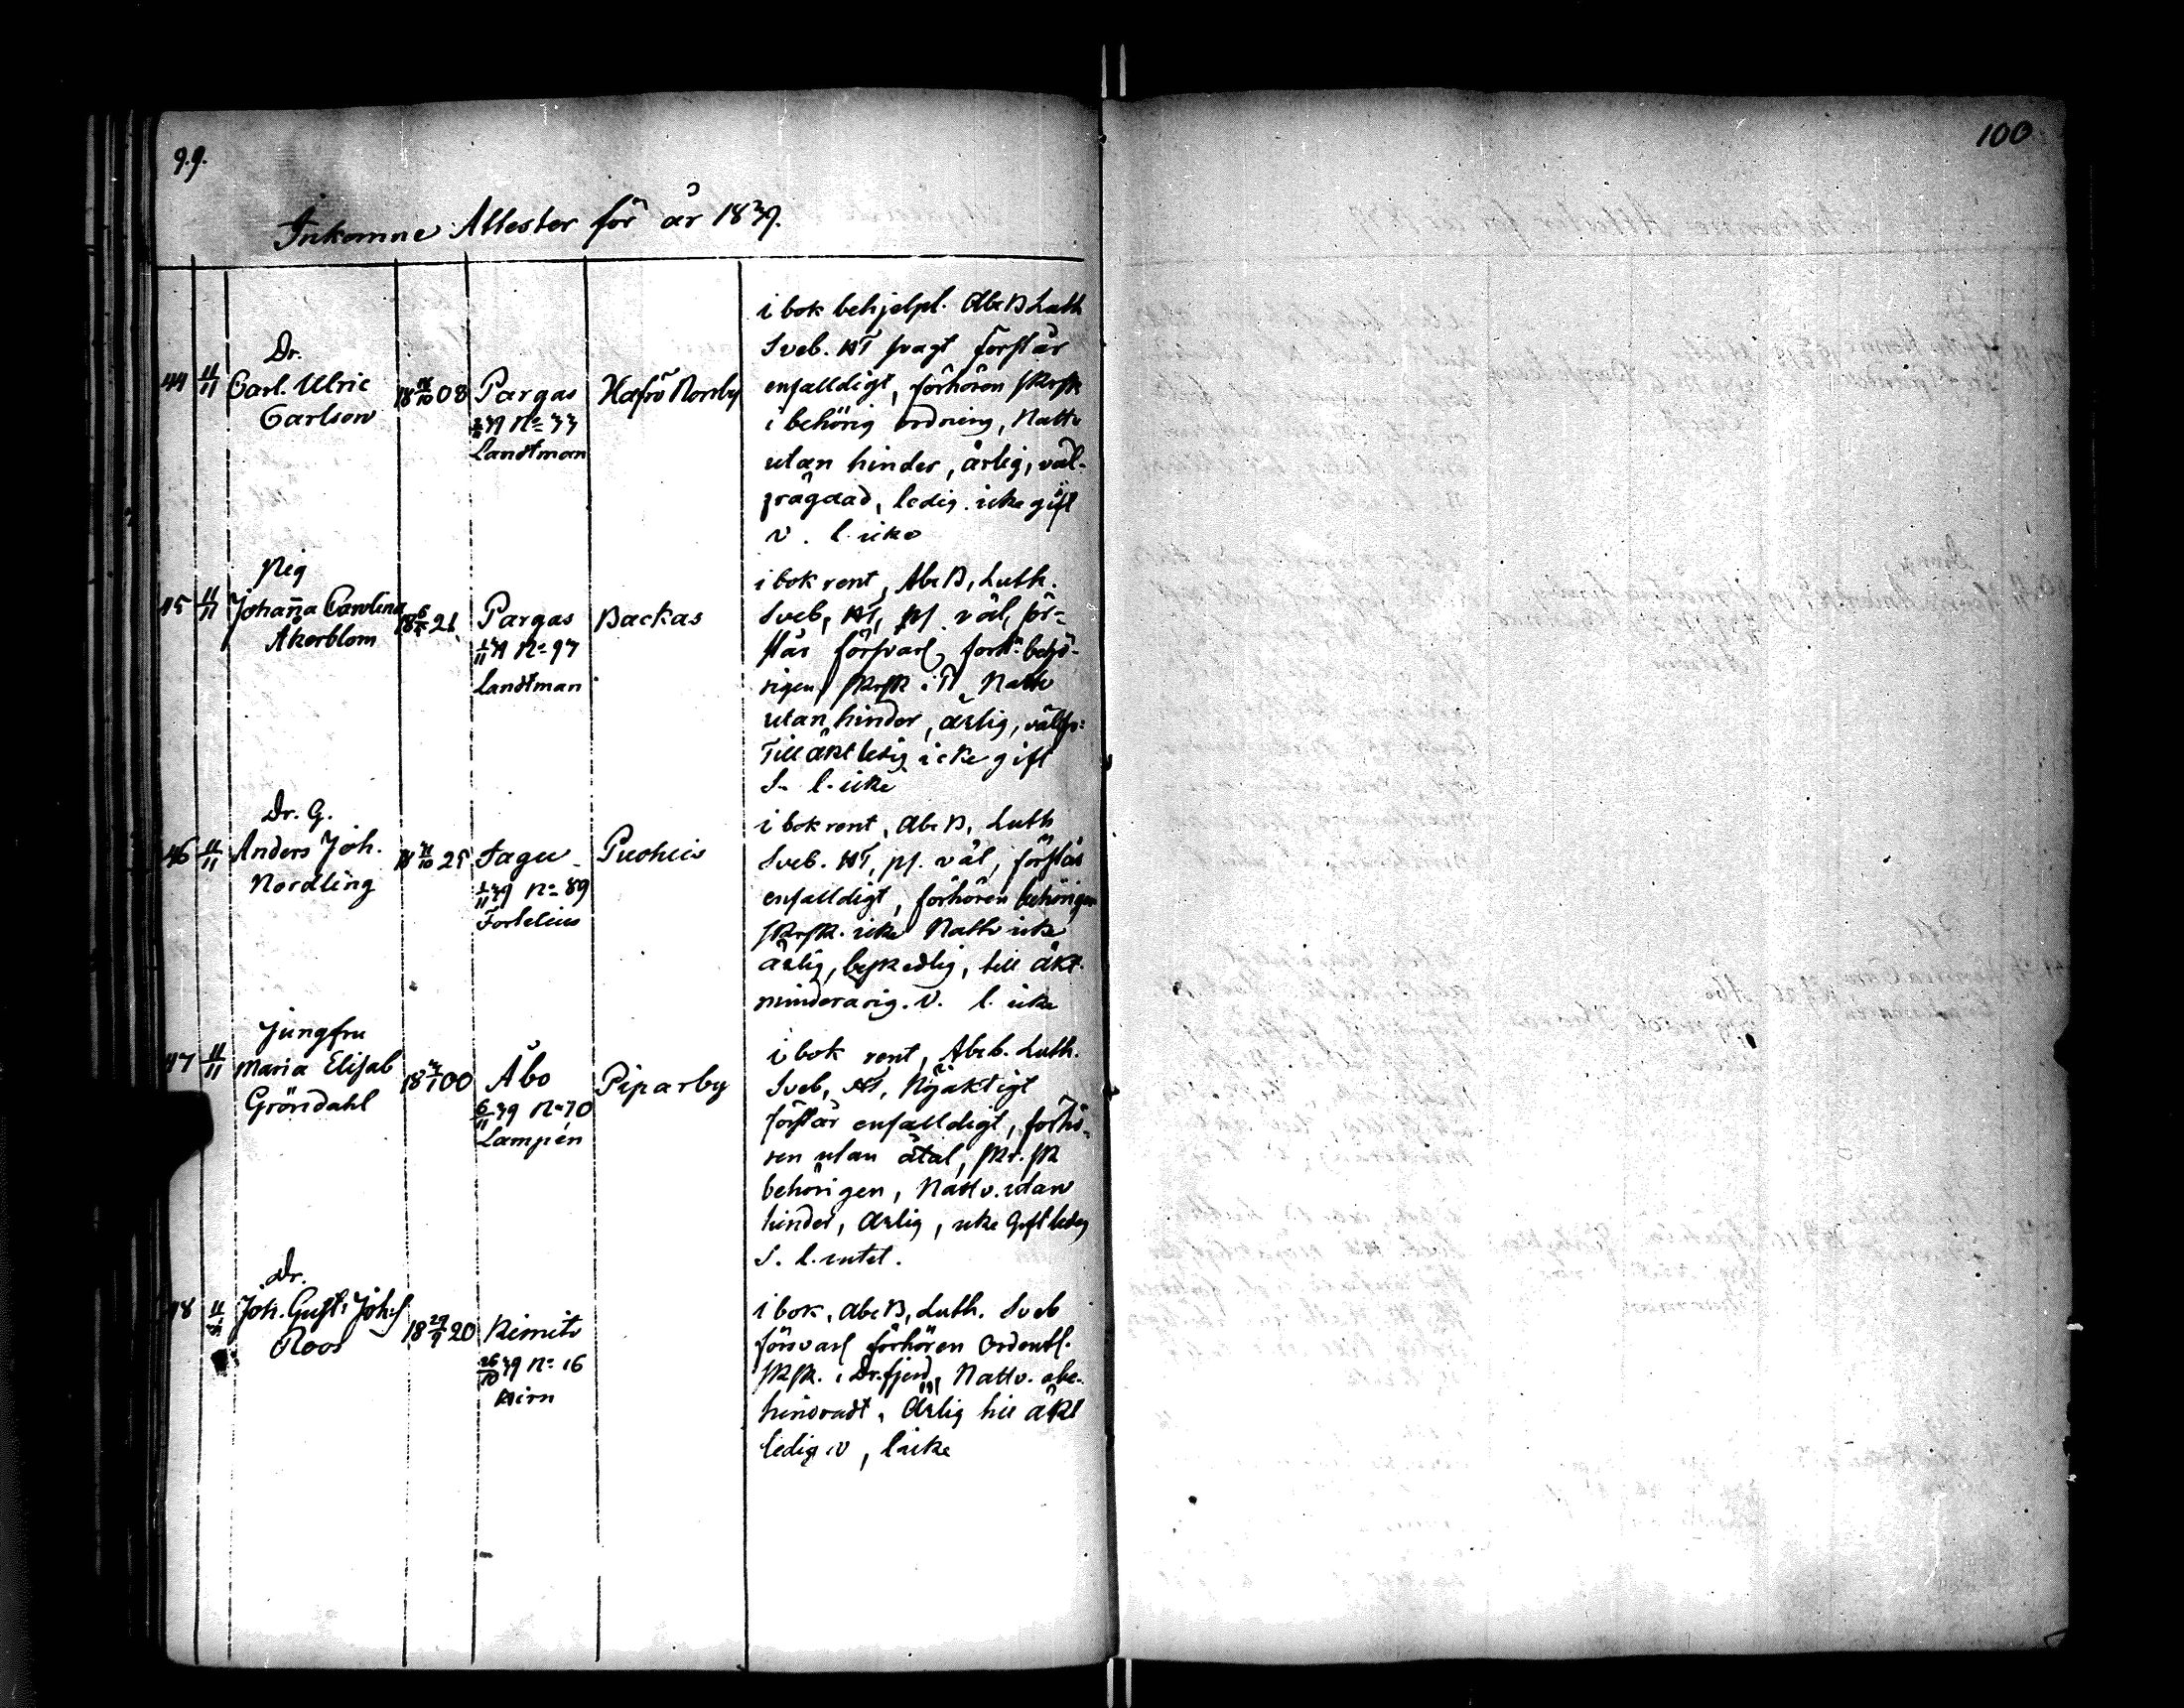 99.
100
Inkomne Attester för år 1839.
44 11/11 Dr.
Carl. Ulric
Carlson
08 Pargas
39 No 33
Landtman
Hafrö Norrby
i bok behjelpl. Abc B Luth
Sveb. HT svagt förstår
enfalldigt, förhören skrsk
i behörig ordning, Nattv
utan hinder, ärlig, väl-
frägdad, ledig icke gift
v. l. icke
45 11/11 Pig
Johanna Carolina
Åkerblom
21 Pargas
39 No 97
Landtman
Backas
i bok rent, Abc B, Luth.
Sveb, HT, ps. väl, för-
står försvarl,
rigen skrsk Nattv
utan hinder, ärlig,
Till äkt ledig icke gift
S. l. icke
46 11/11 Dr. G.
Anders Joh.
Nordling
25 Sagu
1/11 39 No 89
Fortelius
Puoheis
i bok rent, Abc B, Luth
Sveb. HT, ps. väl, förstår
enfalldigt, förhören behörigen
skrsk. icke Nattv icke
ärlig, beskedlig, till äkt.
minderårig. V. l. icke
47 11/11 Jungfru
Maria Elisab
Gröndahl
00 Åbo
6/11 39 No 70
Lampén
Piparby
i bok rent, Abc b. Luth.
Sveb, HT, Nöjaktigt
förstår enfalldigt, förhö-
ren utan åtal, skr. sk
behörigen, Nattv. utan
hinder, Ärlig, icke Gift ledig
S. l. intet.
48 Dr.
Joh. Gust. Johs
Roos
18 29/9 20 Kimito
26/10 39 No 16
Hirn
i bok, Abc B, Luth. Sveb
försvarl förhören Ordentl.
skrsk. Nattv. obe-
hindradt, Ärlig till äkt
ledig v, l icke